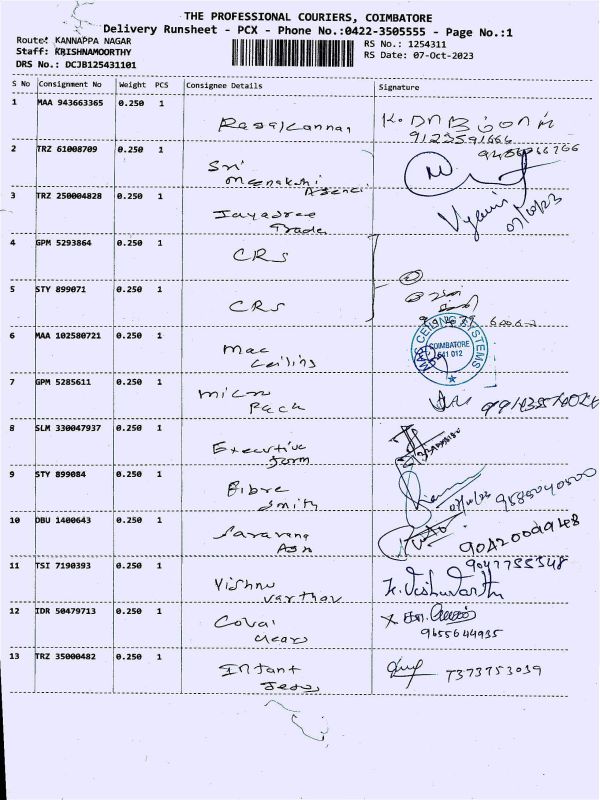 THE PROFESSIONAL COURIERS, COIMBATORE
Delivery Runsheet - PCX - Phone No.:0422-3505555 - Page No.:1
Route: KANNAPPA NAGAR
RS No.: 1254311
Staff: KRISHNAMOORTHY
RS Date: 07-Oct-2023
DRS No.: DCJB125431101
S No Consignment No Weight PCS Consignee Details Signature
1 MAA 943663365 0.250 1
Rasalkannan
9123591666
2 TRZ 61008709 0.250 1
Sri
Meenakshi
3 TRZ 250004828 0.250 1
Jayasree
Trade
07/10/23
4 GPM 5293864 0.250 1
CRS
5 STY 899071 0.250 1
CRS
6 MAA 102580721 0.250 1
Mac
Ceiling
MAC CEILING SYSTEMS
COIMBATORE
641 012
7 GPM 5285611 0.250 1
Micro
Pack
8 SLM 330047937 0.250 1
Executive
Form
9 STY 899084 0.250 1
Fibre
Smith
9585040500
10 DBU 1400643 0.250 1
Saravana
9042000948
11 TSI 7190393 0.250 1
9047755348
Vishnu
Varthav
12 IDR 50479713 0.250 1
Covai
9655644935
13 TRZ 35000482 0.250 1
Infant
Jesu
7373753039